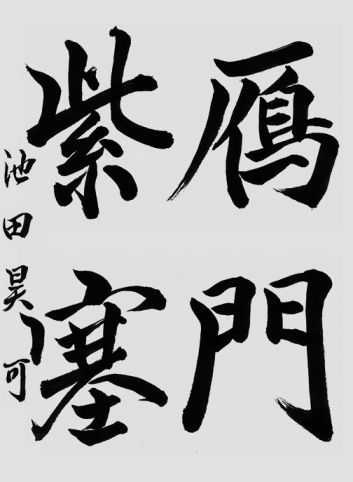 鴈門
紫塞
池田昊可